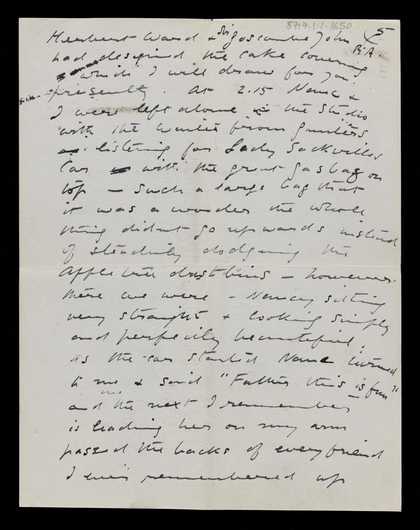 8717.1.1.1650
5
Herbert Ward & Sir Goscombe John
R.A.
had designed the cake covering
which I will draw for you
presently. At 2.15 Nance &
I were left alone in the Studio
with the Waiter from Gunters
listening for Lady Sackvilles
Car with the great gas bag on
top — such a large bag that
it was a wonder the whole
thing didnt go upwards instead
of steadily dodging the
dustbins — however
there we were — Nancy sitting
very straight & looking simply
and perfectly beautiful.
As the car started Nance turned
to me & said "Father this is fun"
and the next I remember
is leading her on my arm
passed the backs of every friend
I ever remembered up